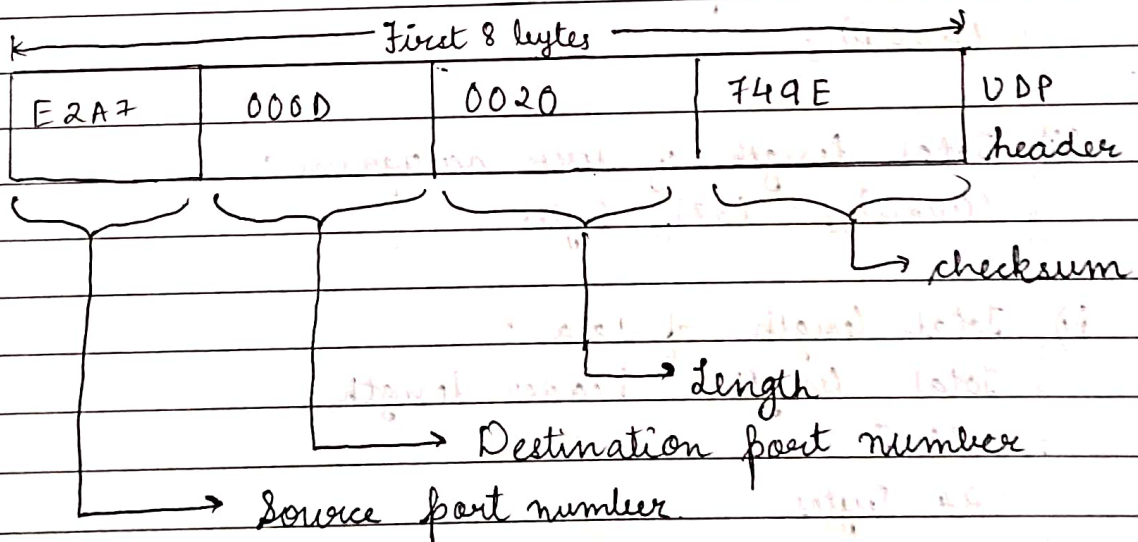 First 8 bytes
E2A7 000D 0020 749E UDP
header
checksum
Length
Destination port number
Source port number.